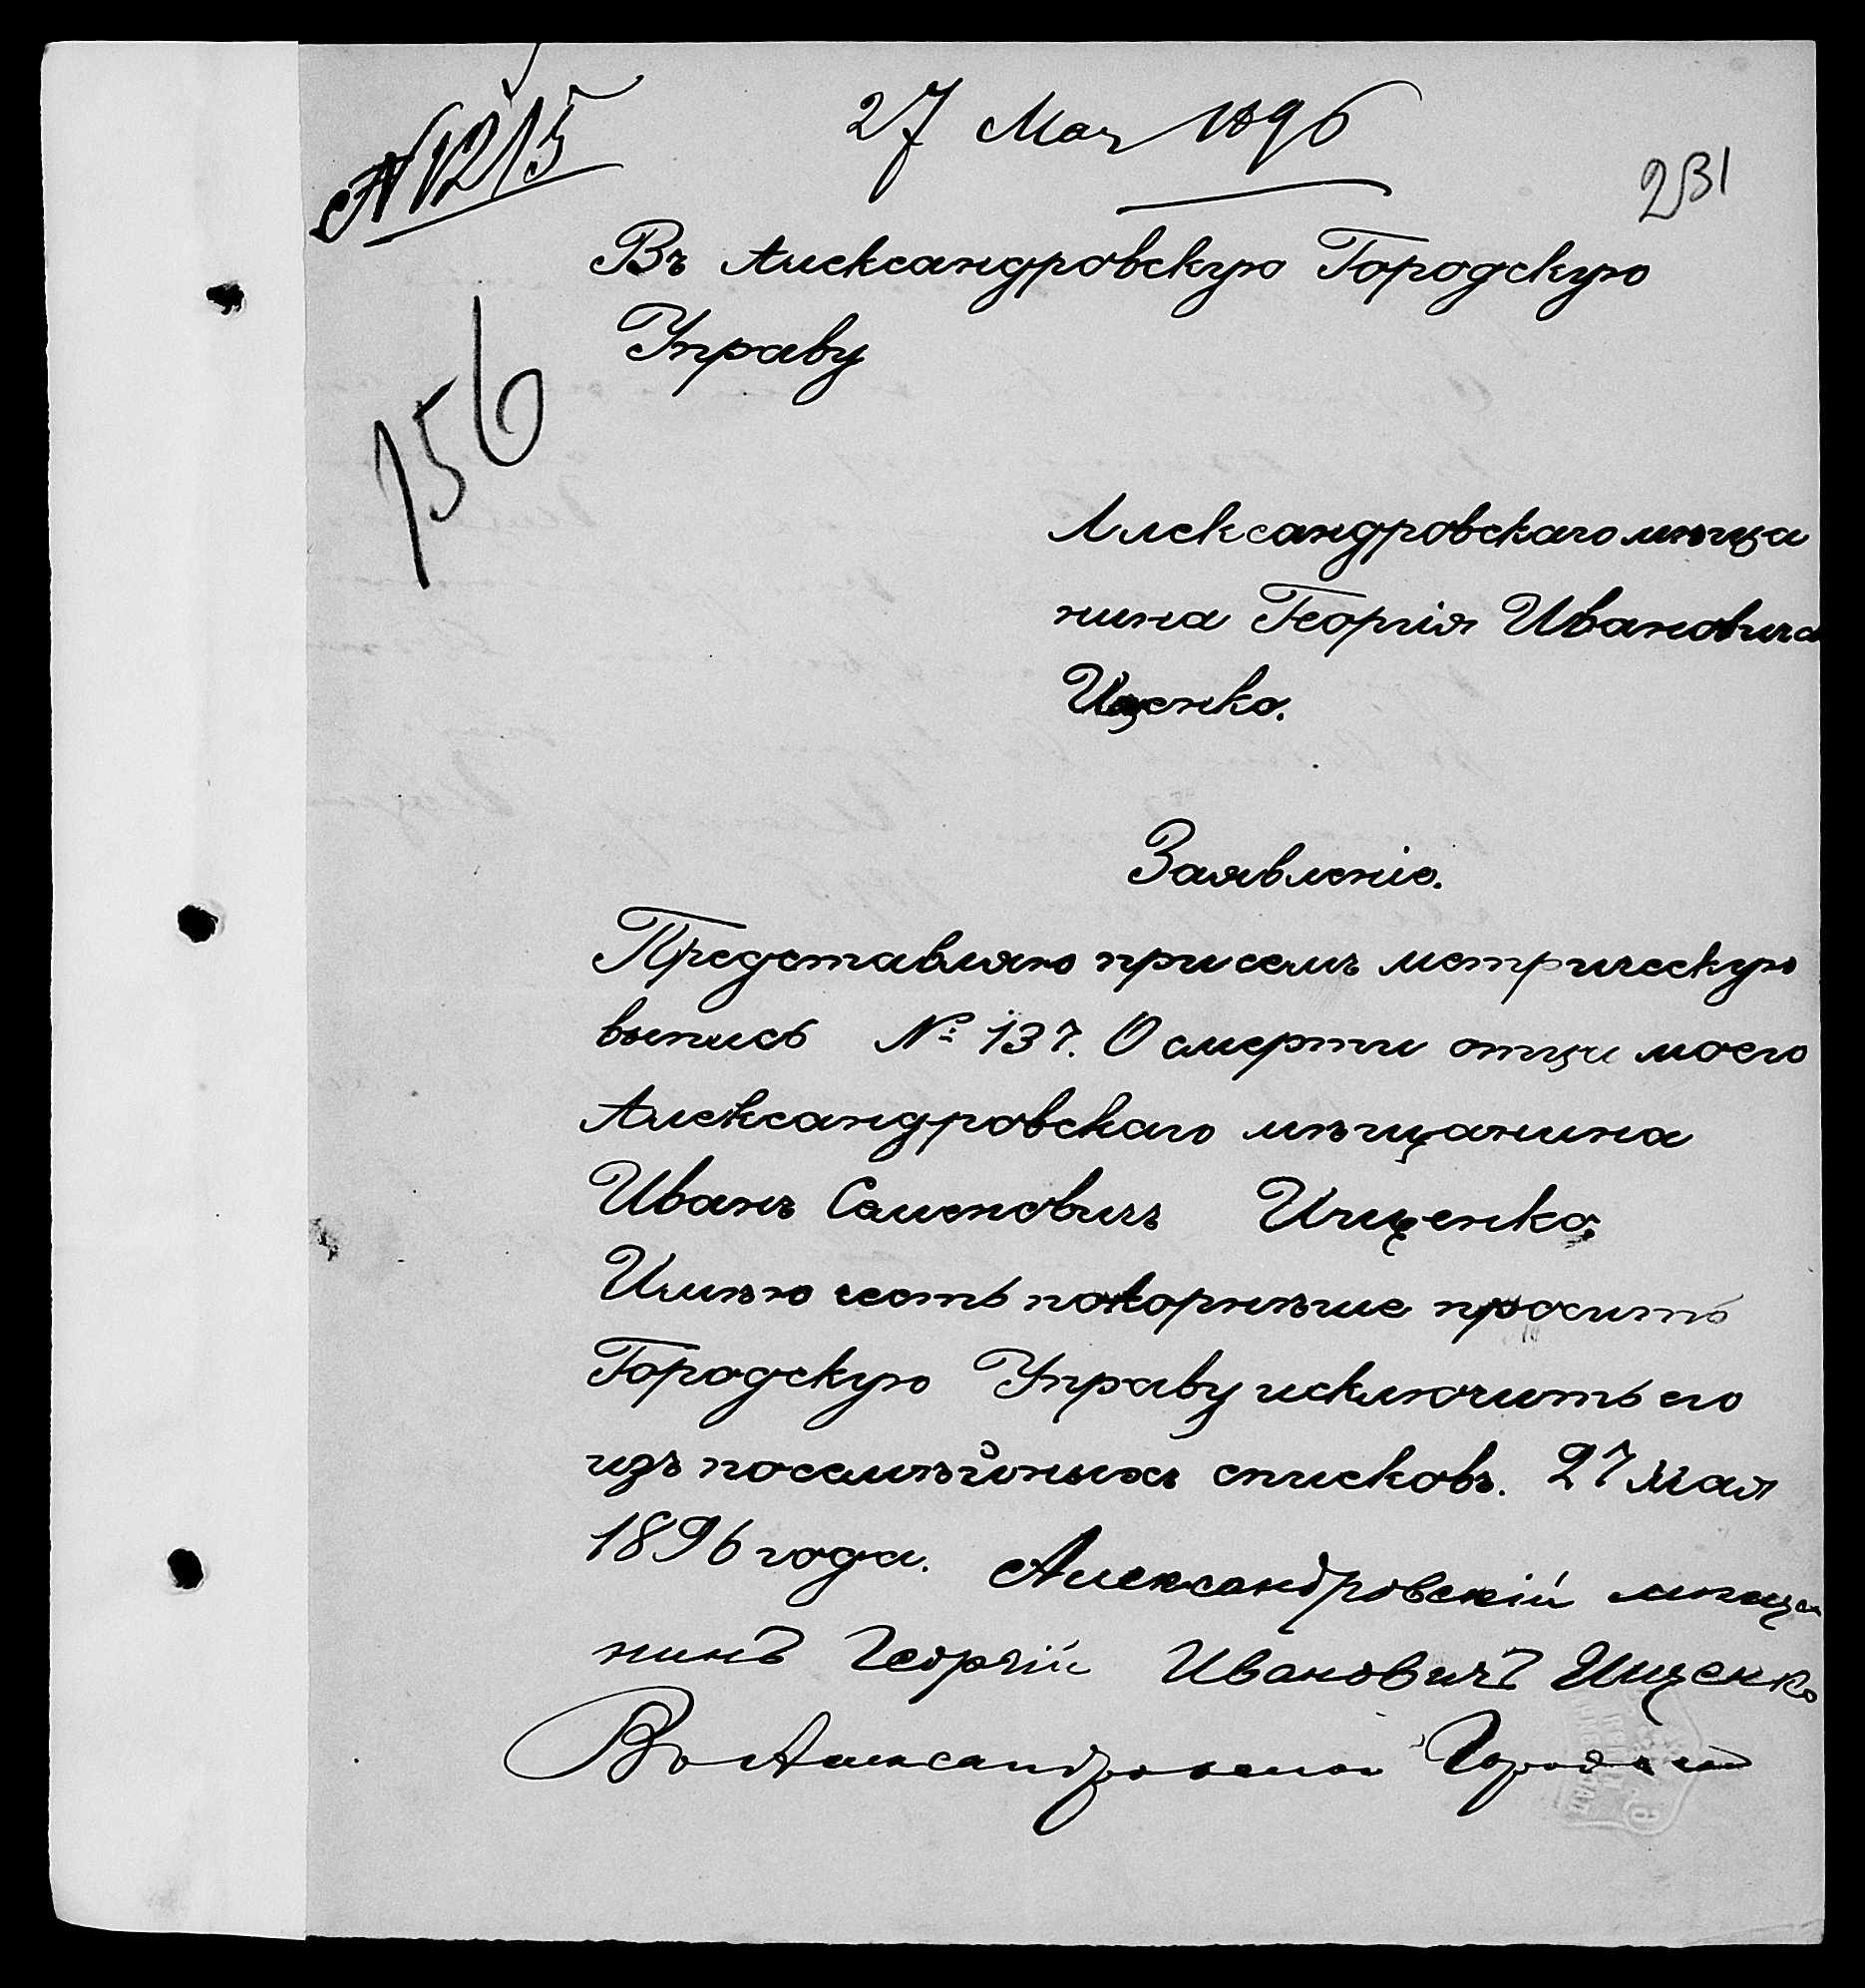 № 1215
27 Мая 1896
231
Въ Александровскую Городскую
Управу
156
Александровскаго мѣща
нина Георгія Ивановича
Ищенко.
Заявленіе.
Представляю при семъ метрическую
выпись № 137. О смерти отца моего
Александровскаго мѣщанина
Иванъ Семеновичъ Ищенко,
Имѣю честь покорнѣше просить
Городскую Управу исключить его
изъ посемѣйныхъ списковъ. 27 Мая
1896 года. Александровскій мѣща
нинъ Георгій Ивановичъ Ищенко
Въ Александровской Городской